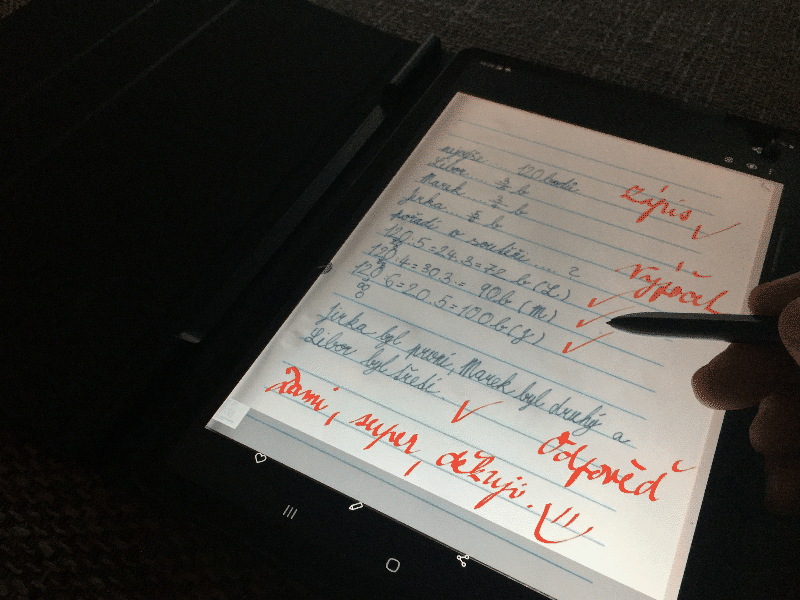 nejvýše ... 120 bodů
Zápis
Libor ... 3/5 b
Marek ... 3/4 b
Jirka ... 5/6 b
pořadí v soutěži ... ?
Výpočet
120 : 5 = 24 . 3 = 72 b (L)
120 : 4 = 30 . 3 = 90 b (M)
120 : 6 = 20 . 5 = 100 b (J)
Jirka byl první, Marek byl druhý a
Libor byl třetí.
Odpověď
Dami, super, děkuji.